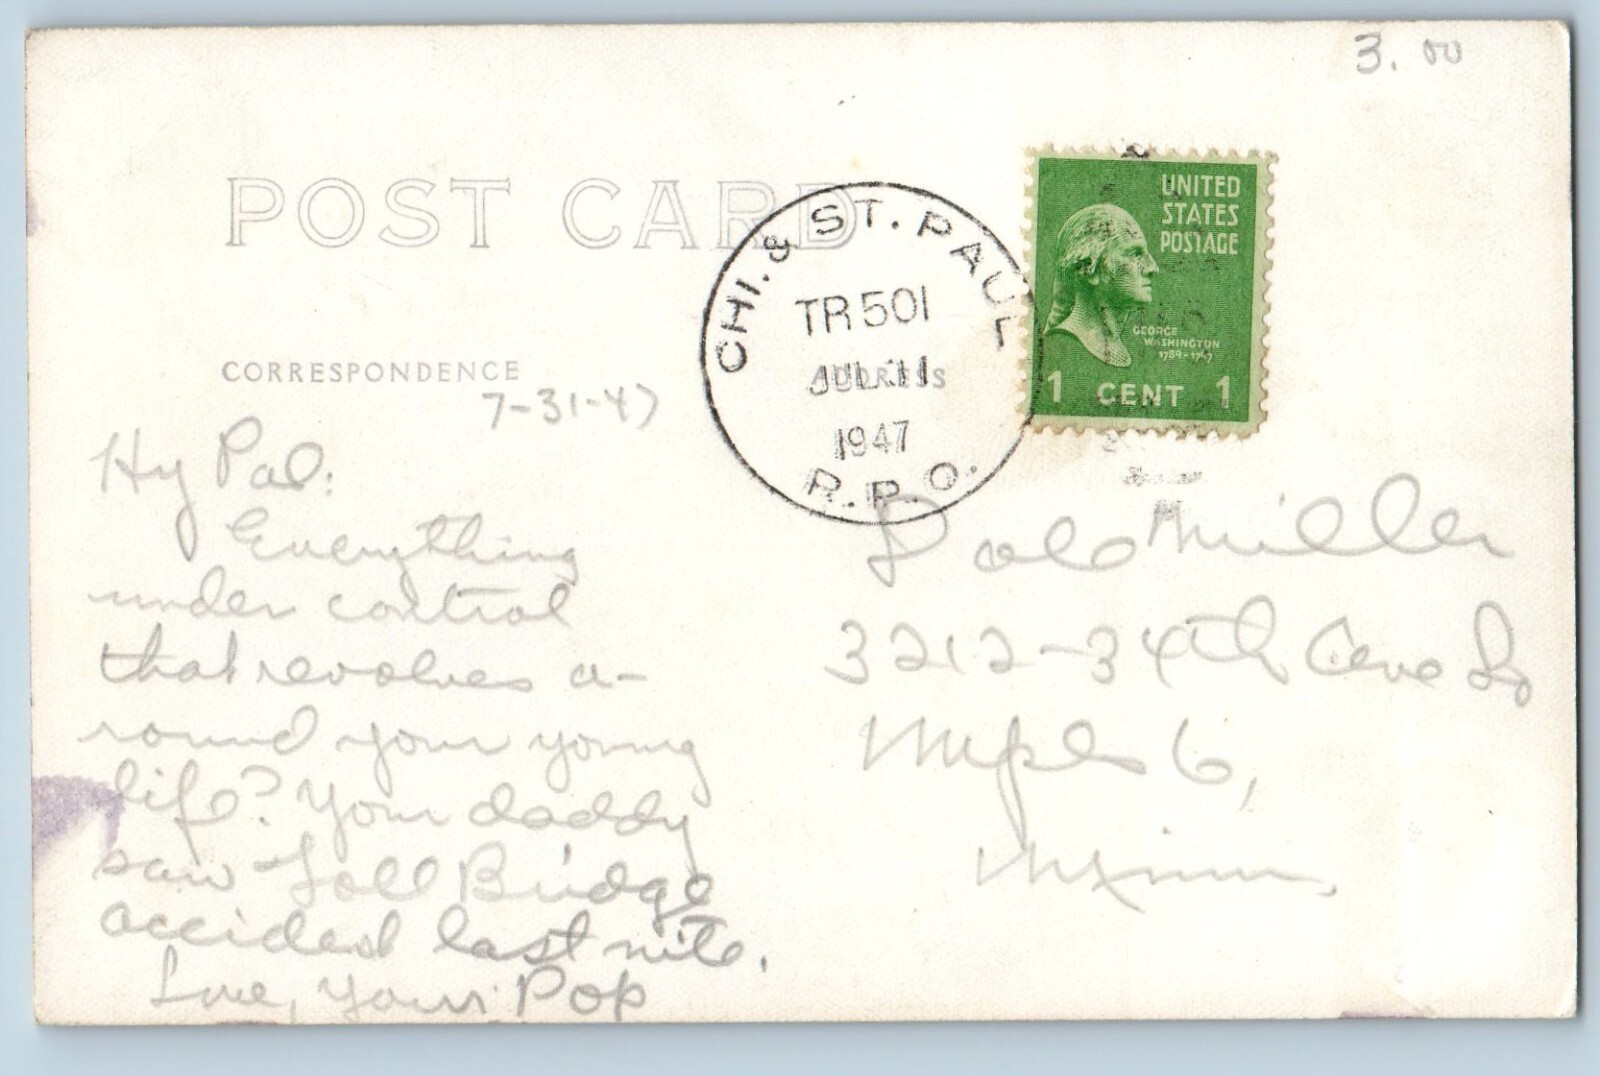 3.00
POST CARD
CHI. & ST. PAUL
TR 501
JUL 31
ADDRESS
1947
R.P.O.
UNITED
STATES
POSTAGE
GEORGE
WASHINGTON
1789-1797
1 CENT 1
CORRESPONDENCE
7-31-47
Hy Pal:
Everything
under control
that revolves a-
round your young
life? Your daddy
saw Toll Bridge
accident last nite.
Love, Your Pop
Miller
3212-34th Ave So
Mpls 6,
Minn.